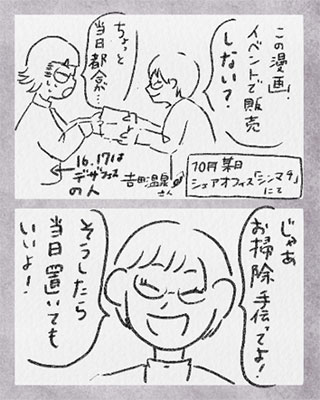 この漫画、
イベントで販売
しない？
ちょっと
当日都合…
16.17は
デザフェス
の人
吉田温泉
さん
10月某日
シェアオフィス「シンマチ」
にて
じゃあ
お掃除手伝ってよ！
そうしたら
当日置いても
いいよ！